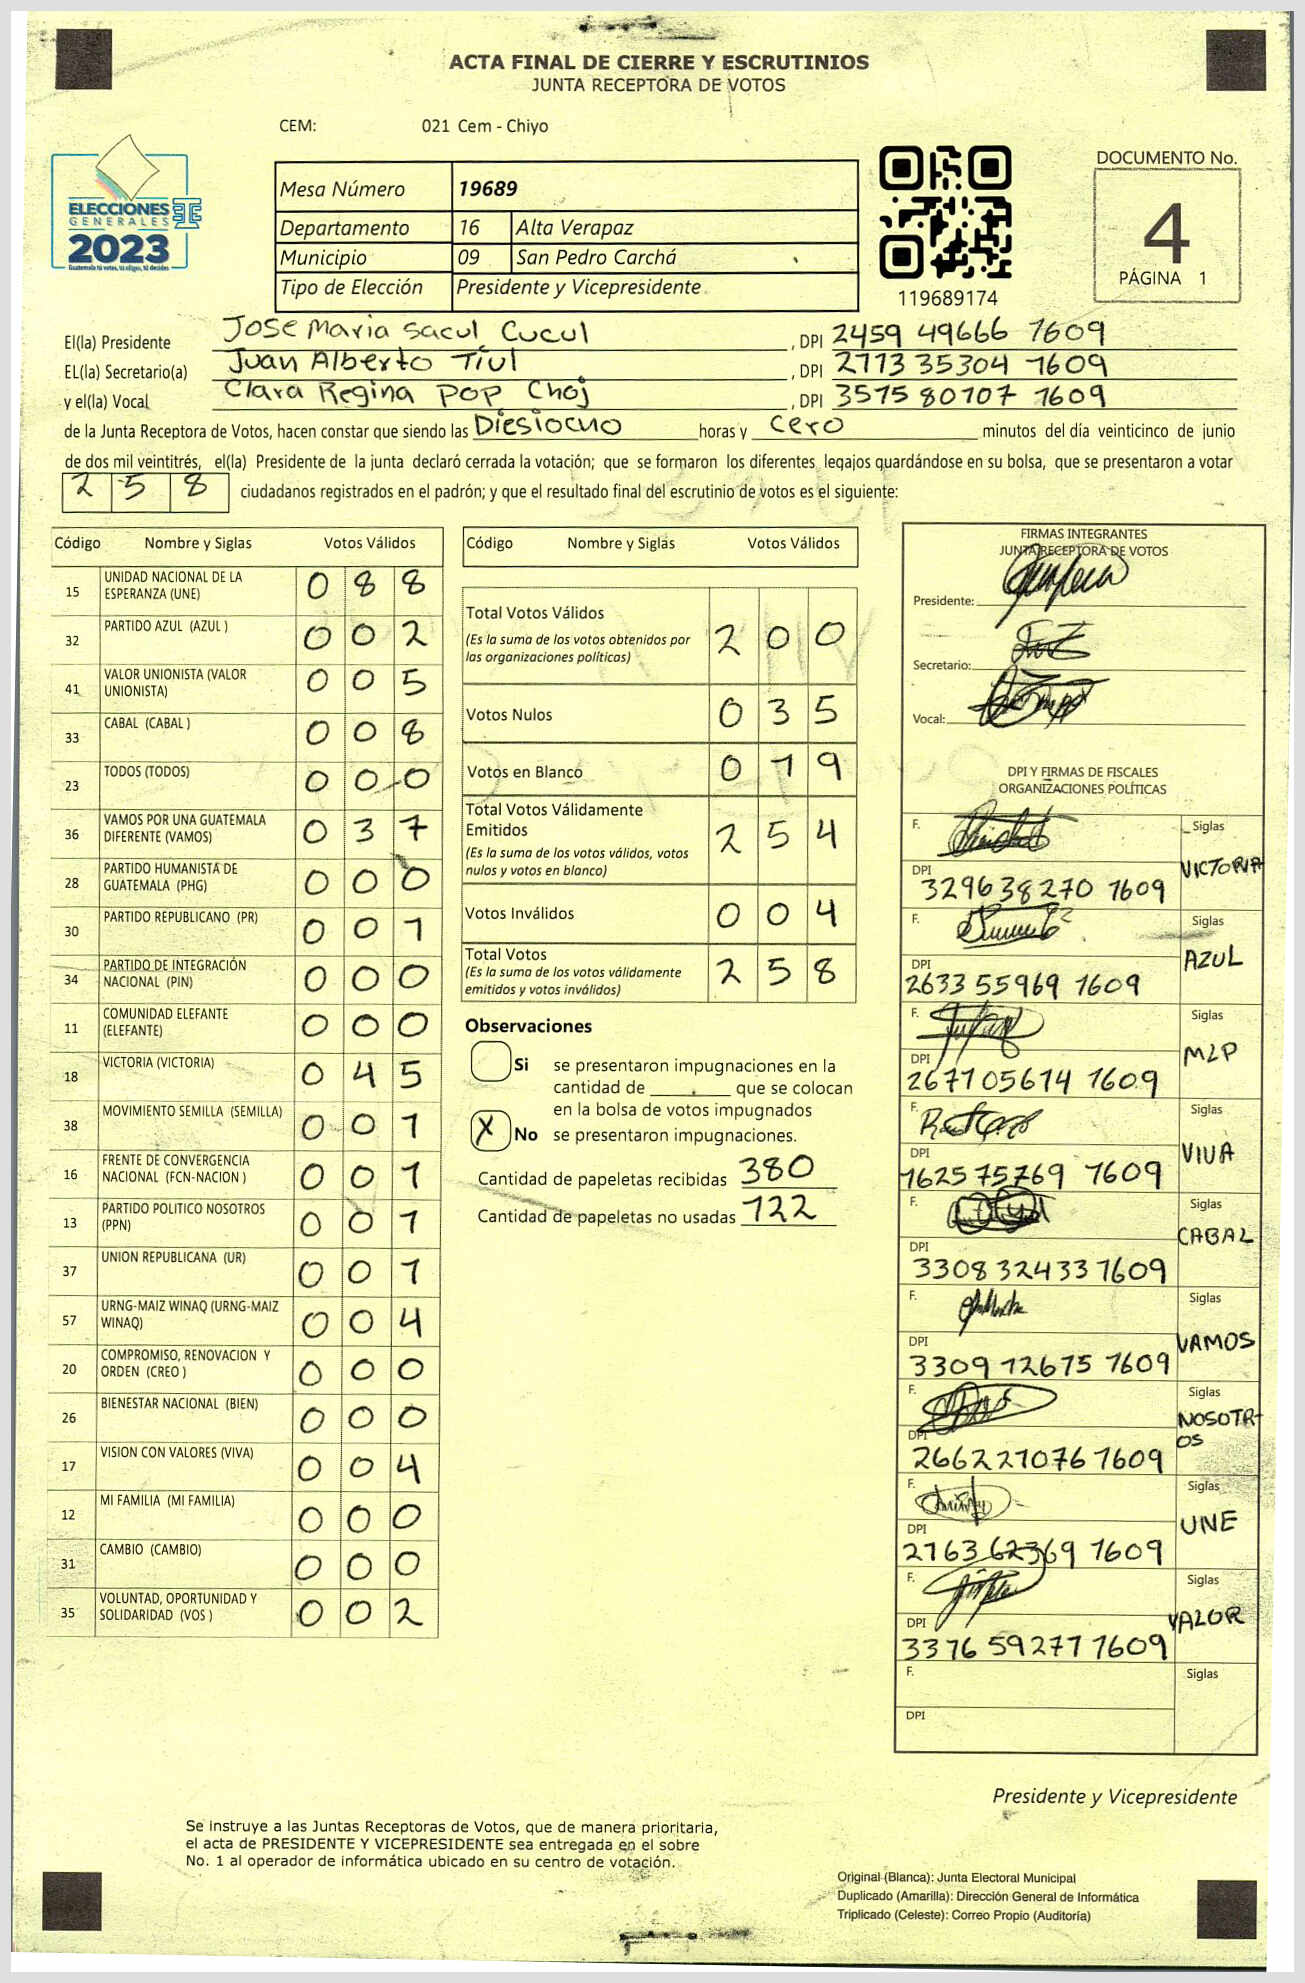 ACTA FINAL DE CIERRE Y ESCRUTINIOS
JUNTA RECEPTORA DE VOTOS
CEM: 021 Cem - Chiyo
ELECCIONES
GENERALES
2023
Guatemala tú votas, tú eliges, tú decides
Mesa Número 19689
Departamento 16 Alta Verapaz
Municipio 09 San Pedro Carchá
Tipo de Elección Presidente y Vicepresidente
119689174
DOCUMENTO No.
4
PÁGINA 1
El(la) Presidente Jose Maria Sacul Cucul, DPI 2459 49666 1609
EL(la) Secretario(a) Juan Alberto Tiul, DPI 2773 35304 1609
y el(la) Vocal Clara Regina Pop Choj, DPI 3575 80707 1609
de la Junta Receptora de Votos, hacen constar que siendo las Diesiocho horas y cero minutos del día veinticinco de junio
de dos mil veintitrés, el(la) Presidente de la junta declaró cerrada la votación; que se formaron los diferentes legajos guardándose en su bolsa, que se presentaron a votar
2 5 8 ciudadanos registrados en el padrón; y que el resultado final del escrutinio de votos es el siguiente:
Código Nombre y Siglas Votos Válidos
15 UNIDAD NACIONAL DE LA ESPERANZA (UNE) 0 8 8
32 PARTIDO AZUL (AZUL ) 0 0 2
41 VALOR UNIONISTA (VALOR UNIONISTA) 0 0 5
33 CABAL (CABAL ) 0 0 8
23 TODOS (TODOS) 0 0 0
36 VAMOS POR UNA GUATEMALA DIFERENTE (VAMOS) 0 3 7
28 PARTIDO HUMANISTA DE GUATEMALA (PHG) 0 0 0
30 PARTIDO REPUBLICANO (PR) 0 0 1
34 PARTIDO DE INTEGRACIÓN NACIONAL (PIN) 0 0 0
11 COMUNIDAD ELEFANTE (ELEFANTE) 0 0 0
18 VICTORIA (VICTORIA) 0 4 5
38 MOVIMIENTO SEMILLA (SEMILLA) 0 0 1
16 FRENTE DE CONVERGENCIA NACIONAL (FCN-NACION ) 0 0 1
13 PARTIDO POLITICO NOSOTROS (PPN) 0 0 1
37 UNION REPUBLICANA (UR) 0 0 1
57 URNG-MAIZ WINAQ (URNG-MAIZ WINAQ) 0 0 4
20 COMPROMISO, RENOVACION Y ORDEN (CREO ) 0 0 0
26 BIENESTAR NACIONAL (BIEN) 0 0 0
17 VISION CON VALORES (VIVA) 0 0 4
12 MI FAMILIA (MI FAMILIA) 0 0 0
31 CAMBIO (CAMBIO) 0 0 0
35 VOLUNTAD, OPORTUNIDAD Y SOLIDARIDAD (VOS ) 0 0 2
Código Nombre y Siglas Votos Válidos
Total Votos Válidos 2 0 0
(Es la suma de los votos obtenidos por
las organizaciones políticas)
Votos Nulos 0 3 5
Votos en Blanco 0 1 9
Total Votos Válidamente
Emitidos 2 5 4
(Es la suma de los votos válidos, votos
nulos y votos en blanco)
Votos Inválidos 0 0 4
Total Votos 2 5 8
(Es la suma de los votos válidamente
emitidos y votos inválidos)
Observaciones
Si se presentaron impugnaciones en la
cantidad de ______ que se colocan
en la bolsa de votos impugnados
X No se presentaron impugnaciones.
Cantidad de papeletas recibidas 380
Cantidad de papeletas no usadas 122
FIRMAS INTEGRANTES
JUNTA RECEPTORA DE VOTOS
Presidente:
Secretario:
Vocal:
DPI Y FIRMAS DE FISCALES
ORGANIZACIONES POLÍTICAS
F. Siglas
VICTORIA
DPI 3296 38270 1609
F. Siglas
AZUL
DPI 2633 55969 1609
F. Siglas
MLP
DPI 2677 05674 1609
F. Siglas
VIVA
DPI 1625 75769 1609
F. Siglas
CABAL
DPI 3308 32433 1609
F. Siglas
VAMOS
DPI 3309 12675 1609
F. Siglas
NOSOTR-
OS
DPI 2662 21076 1609
F. Siglas
UNE
DPI 2763 62369 1609
F. Siglas
VALOR
DPI 3376 59277 1609
F. Siglas
DPI
Presidente y Vicepresidente
Se instruye a las Juntas Receptoras de Votos, que de manera prioritaria,
el acta de PRESIDENTE Y VICEPRESIDENTE sea entregada en el sobre
No. 1 al operador de informática ubicado en su centro de votación.
Original (Blanca): Junta Electoral Municipal
Duplicado (Amarilla): Dirección General de Informática
Triplicado (Celeste): Correo Propio (Auditoría)